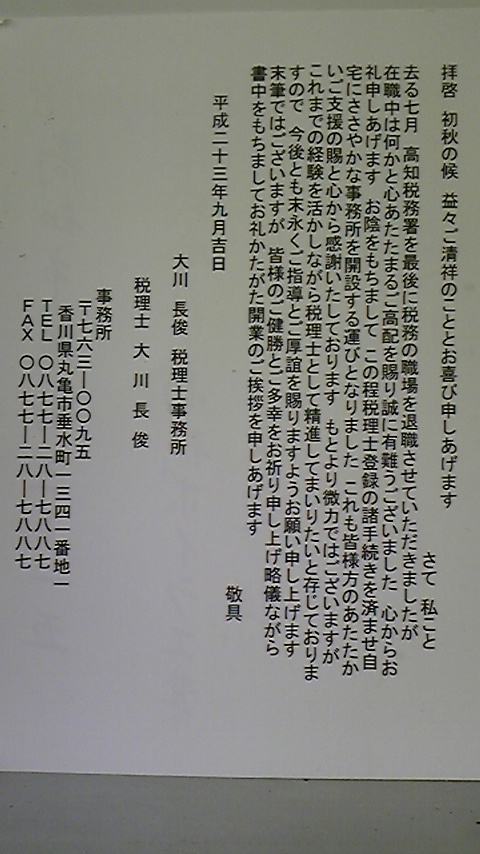 拝啓　初秋の候　益々ご清祥のこととお喜び申しあげます
さて　私こと
去る七月　高知税務署を最後に税務の職場を退職させていただきましたが
在職中は何かと心あたたまるご高配を賜り誠に有難うございました　心からお
礼申しあげます　お陰をもちまして　この程税理士登録の諸手続きを済ませ自
宅にささやかな事務所を開設する運びとなりました　これも皆様方のあたたか
いご支援の賜と心から感謝いたしております　もとより微力ではございますが
これまでの経験を活かしながら税理士として精進してまいりたいと存じておりま
すので　今後とも末永くご指導とご厚誼を賜りますようお願い申し上げます
末筆ではございますが　皆様のご健勝とご多幸をお祈り申し上げ略儀ながら
書中をもちましてお礼かたがた開業のご挨拶を申しあげます
敬具
平成二十三年九月吉日
大川　長俊　税理士事務所
税理士　大　川　長　俊
事務所
〒七六三―〇〇九五
香川県丸亀市垂水町一三四一番地一
ＴＥＬ　〇八七七―二八―七八八七
ＦＡＸ　〇八七七―二八―七八八七